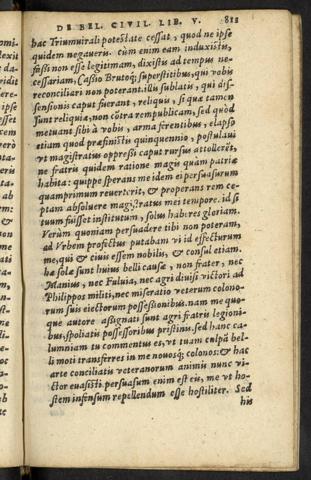 DE BEL. CIVIL. LIB. V. 813
hac Triumuirali potestate cessat, quod ne ipse
quidem negaueris. cùm enim eam induxistis,
fassi non esse legitimam, dixistis ad tempus ne-
cessariam, Cassio Brutoq; superstitibus, qui vobis
reconciliari non poterant. illis sublatis, qui dis-
sensionis caput fuerant, reliquis, si quæ tamen
sunt reliquiæ, non cõtra rempublicam, sed quòd
metuant sibi à vobis, arma ferentibus, elapso
etiam quod præfinistis quinquennio, postulaui
vt magistratus oppressi caput rursus attollerẽt,
ne fratris quidem ratione magis quàm patriæ
habita: quippe sperans me idem ei persuasurum
quamprimum reuerterit, & properans rem ce-
ptam absoluere magistratus mei tempore. id si
tuum fuisset institutum, solus haberes gloriam.
Verùm quoniam persuadere tibi non poteram,
ad Vrbem profectus putabam vi id effecturum
me, qui & ciuis essem nobilis, & consul etiam.
hæ solæ sunt huius belli causæ, non frater, nec
Manius, nec Fuluia, nec agri diuisi victori ad
Philippos militi, nec miseratio veterum colono-
rum suis eiectorum possessionibus. nam me quo-
que autore assignati sunt agri fratris legioni-
bus, spoliatis possessoribus pristinis. sed hanc ca-
lumniam tu commentus es, vt tuam culpã bel-
li moti transferres in me nouosq; colonos: & hac
arte conciliatis veteranorum animis nunc vi-
ctor euasisti. persuasum enim est eis, me vt ho-
stem infensum repellendum esse hostiliter. Sed
his